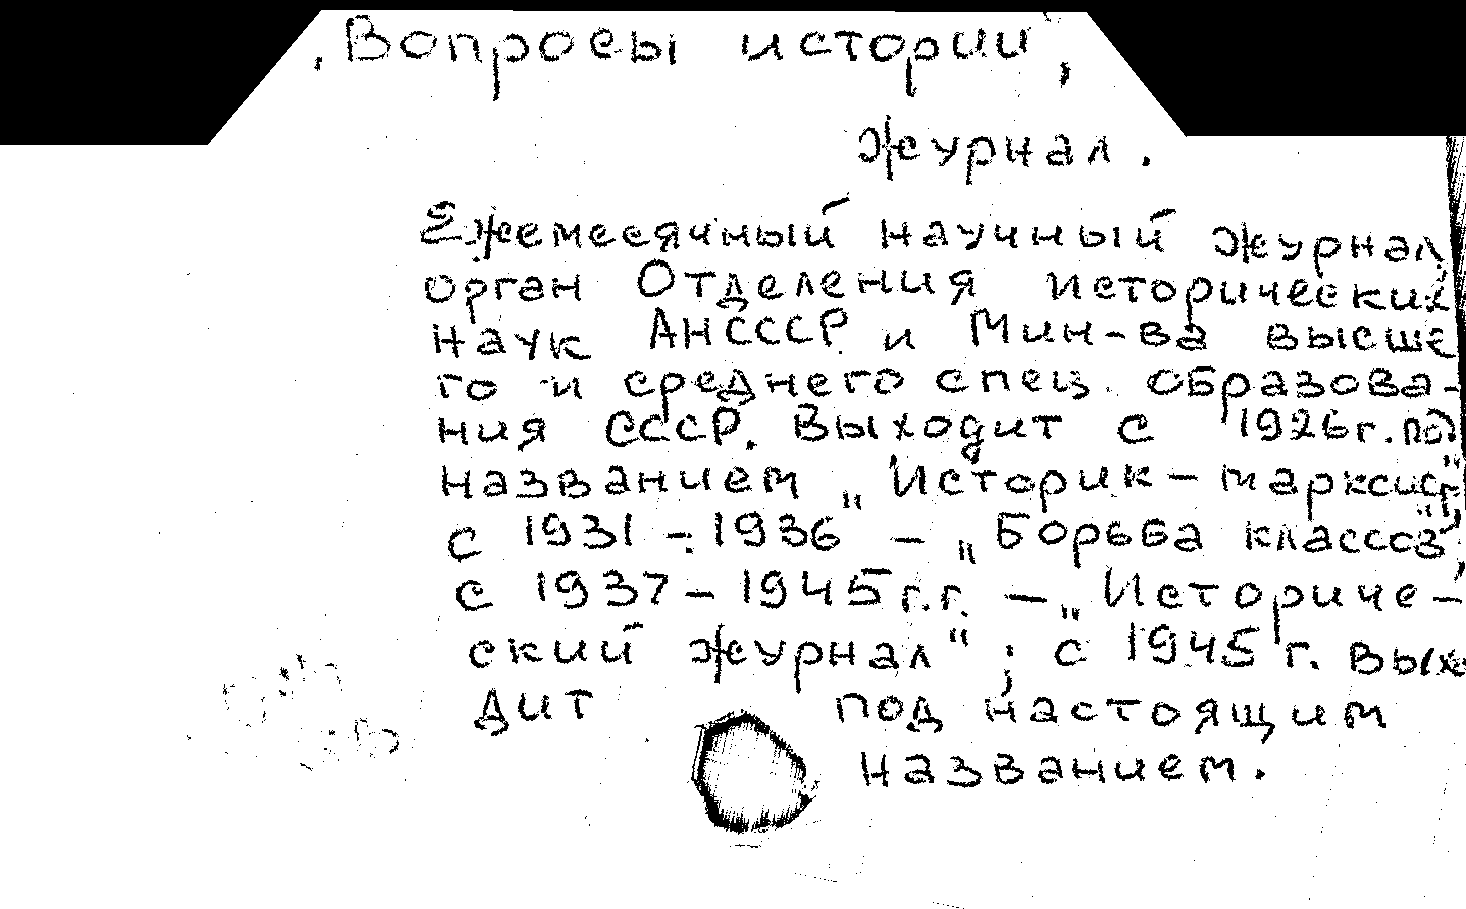 „Вопросы истории",
журнал.
Ежемесячный научный журнал
орган Отделения исторических
наук АНСССР и Мин-ва высше
го и среднего спец. образова-
ния СССР. Выходит с 1926г. под
названием „Историк-марксист"
с 1931-1936 - „Борьба классов",
с 1937-1945г.г. - „Историче-
ский журнал"; с 1945 г. выхо
дит под настоящим
названием.